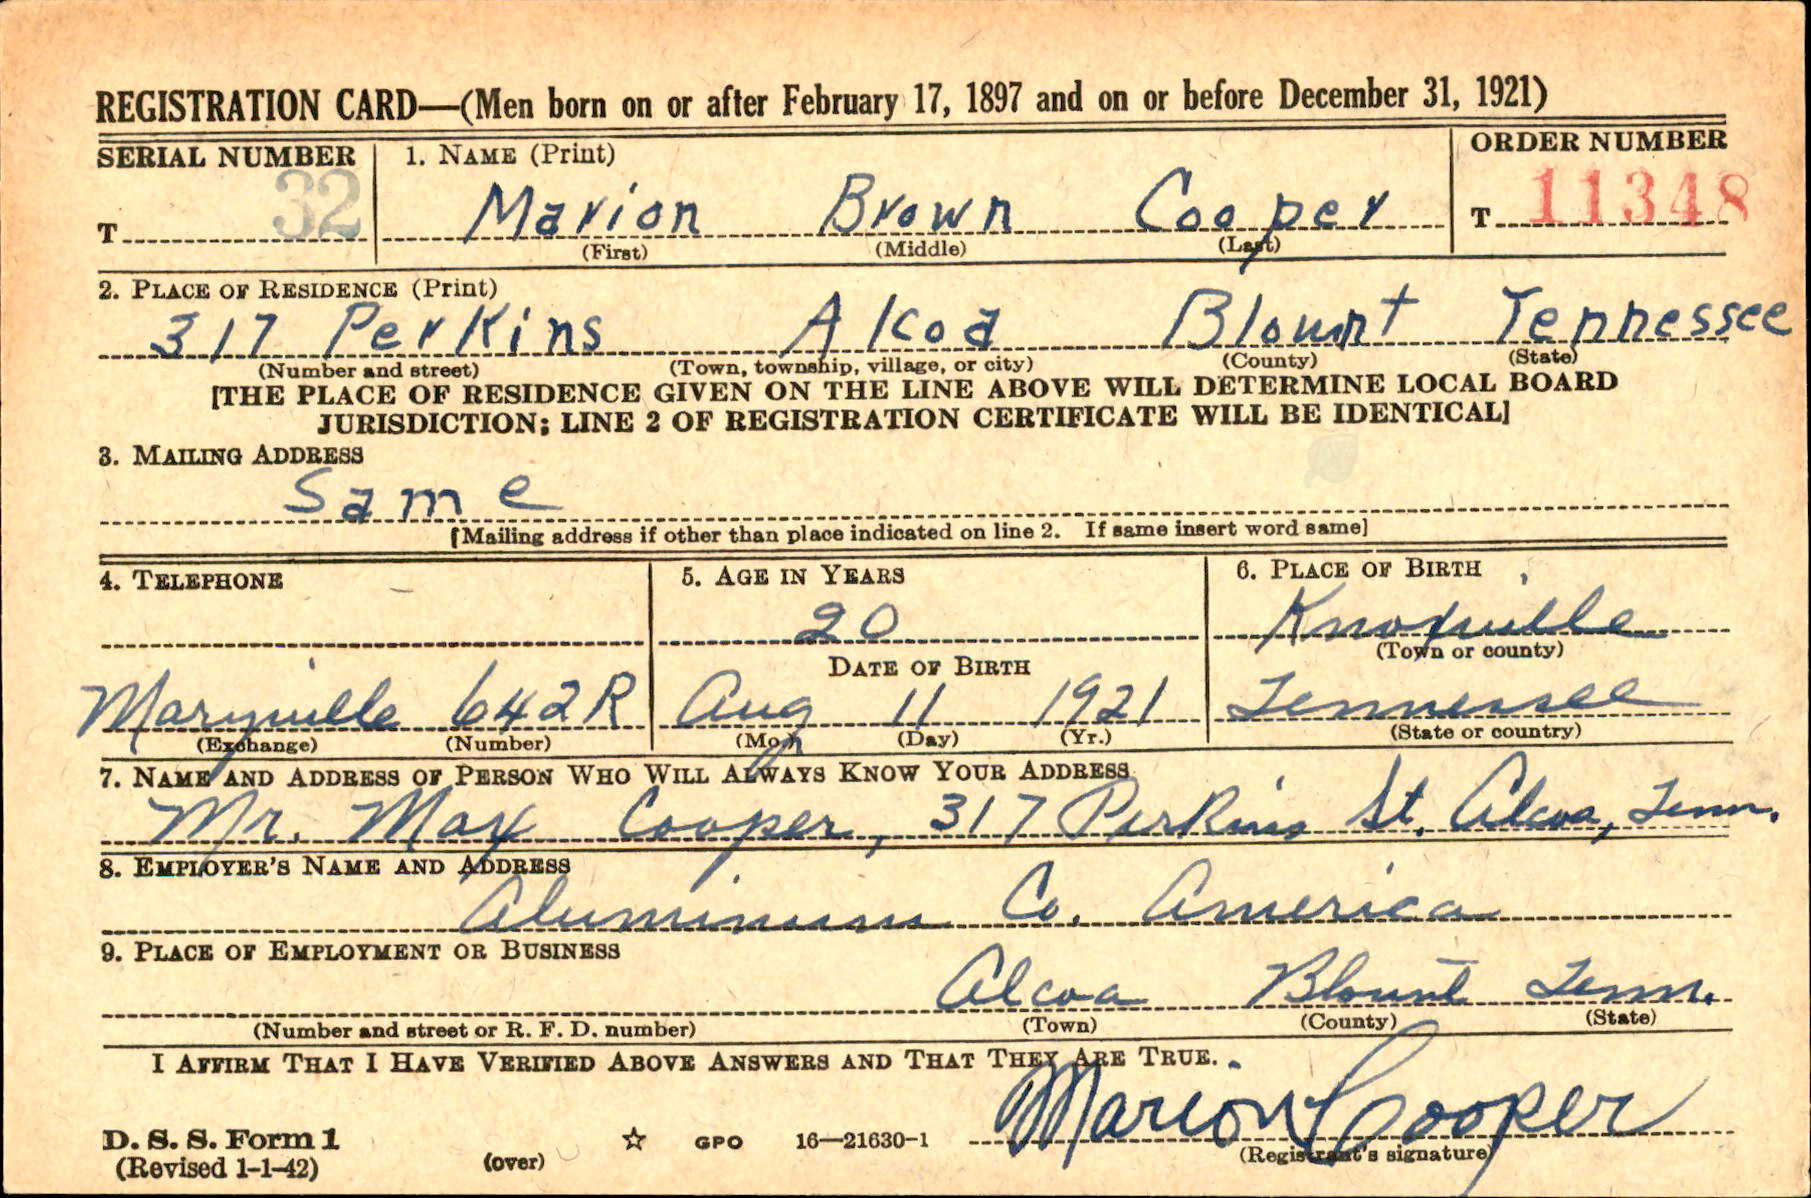 REGISTRATION CARD—(Men born on or after February 17, 1897 and on or before December 31, 1921)
SERIAL NUMBER
T 32
1. NAME (Print)
Marion Brown Cooper
(First) (Middle) (Last)
ORDER NUMBER
T 11348
2. PLACE OF RESIDENCE (Print)
317 Perkins Alcoa Blount Tennessee
(Number and street) (Town, township, village, or city) (County) (State)
[THE PLACE OF RESIDENCE GIVEN ON THE LINE ABOVE WILL DETERMINE LOCAL BOARD
JURISDICTION; LINE 2 OF REGISTRATION CERTIFICATE WILL BE IDENTICAL]
3. MAILING ADDRESS
Same
[Mailing address if other than place indicated on line 2. If same insert word same]
4. TELEPHONE
Maryville 642R
(Exchange) (Number)
5. AGE IN YEARS
20
DATE OF BIRTH
Aug 11 1921
(Mo.) (Day) (Yr.)
6. PLACE OF BIRTH
Knoxville
(Town or county)
Tennessee
(State or country)
7. NAME AND ADDRESS OF PERSON WHO WILL ALWAYS KNOW YOUR ADDRESS
Mr. Max Cooper, 317 Perkins St. Alcoa, Tenn.
8. EMPLOYER'S NAME AND ADDRESS
Aluminum Co. America
9. PLACE OF EMPLOYMENT OR BUSINESS
Alcoa Blount Tenn.
(Number and street or R. F. D. number) (Town) (County) (State)
I AFFIRM THAT I HAVE VERIFIED ABOVE ANSWERS AND THAT THEY ARE TRUE.
Marion Cooper
(Registrant's signature)
D. S. S. Form 1
(Revised 1-1-42) (over) ☆ GPO 16—21630-1